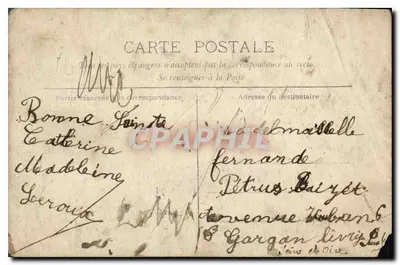 CARTE POSTALE
Tous les pays étrangers n'acceptent pas la correspondance au recto
Se renseigner à la Poste
Partie réservée à la Correspondance
Adresse du destinataire
Bonne Sainte
Catherine
Madeleine
Leroux
Mademoiselle
fernande
Pétrus
avenue 6
Gargan livry
Seine et Oise
CPARAMA